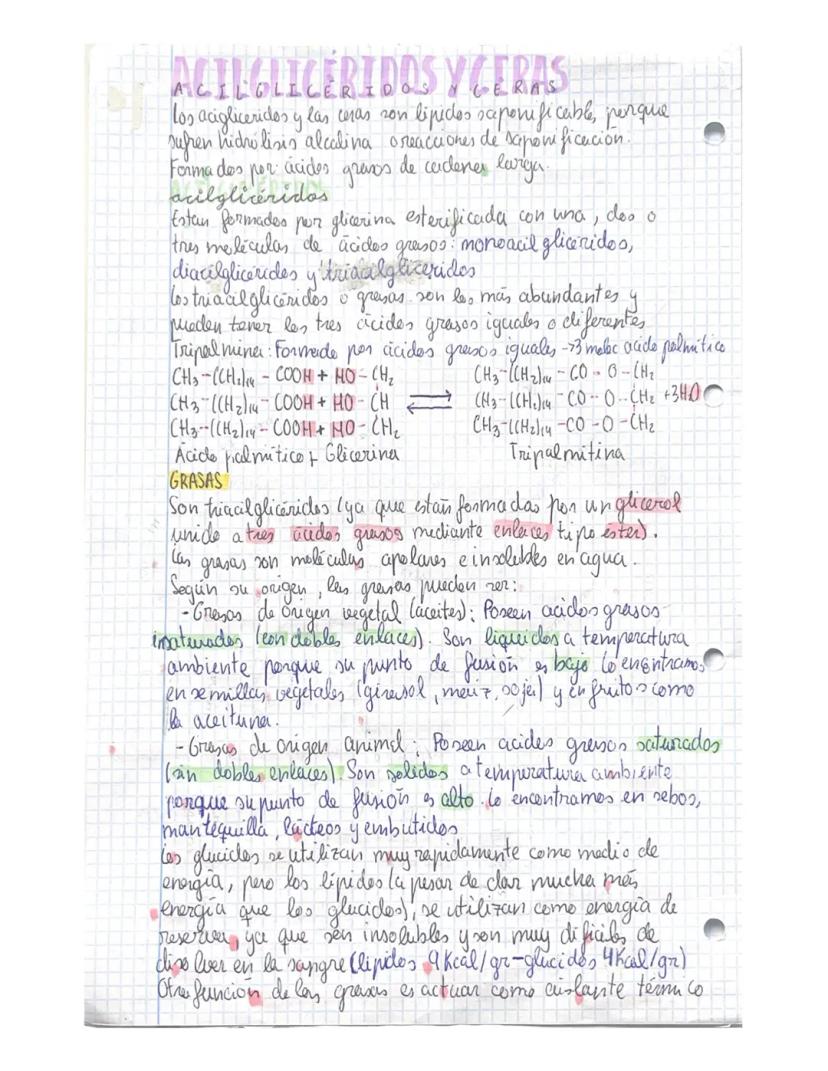 ACILGLICÉRIDOS Y CERAS
ACILGLICÉRIDOS Y CERAS
Los acigliceridos y las ceras son lípidos saponificable, porque
sufren hidrólisis alcalina o reacciones de saponificación.
Formados por ácidos grasos de cadenas larga.
acilglicéridos
Estan formados por glicerina esterificada con una, dos o
tres moléculas de ácidos grasos: monoacilglicéridos,
diacilglicéridos y triacilglicéridos
Los triacilglicéridos o grasas son los más abundantes y
pueden tener los tres ácidos grasos iguales o diferentes
Tripalmina: Formada por ácidos grasos iguales →3 moléc acido palmítico
CH3-(CH2)14 - COOH + HO - CH2 CH3-(CH2)14 - CO - O - CH2
CH3-(CH2)14 - COOH + HO - CH ⇄ CH3-(CH2)14 - CO - O - CH2 +3H2O
CH3-(CH2)14 - COOH + HO - CH2 CH3-(CH2)14 - CO - O - CH2
Ácido palmítico + Glicerina Tripalmitina
GRASAS
Son triacilglicéridos (ya que están formadas por un glicerol
unido a tres ácidos grasos mediante enlaces tipo éster).
Las grasas son moléculas apolares e insolubles en agua.
Según su origen, las grasas pueden ser:
- Grasas de origen vegetal (aceites): Poseen acidos grasos
insaturados (con dobles enlaces). Son líquidos a temperatura
ambiente porque su punto de fusión es bajo Lo encontramos
en semillas vegetales (girasol, maíz, soja) y en frutos como
la aceituna.
- Grasas de origen animal: Poseen acidos grasos saturados
(sin dobles enlaces). Son solidos a temperatura ambiente
porque su punto de fusión es alto. Lo encontramos en sebos,
mantequilla, lácteos y embutidos
Los glucidos se utilizan muy rapidamente como medio de
energía, pero los lípidos (a pesar de dar mucha más
energía que los glucidos), se utilizan como energía de
reserva, ya que son insolubles y son muy dificiles de
disolver en la sangre (lipidos 9Kcal/gr-glucidos 4Kcal/gr)
Otra funcion de las grasas es actuar como aislante térmico